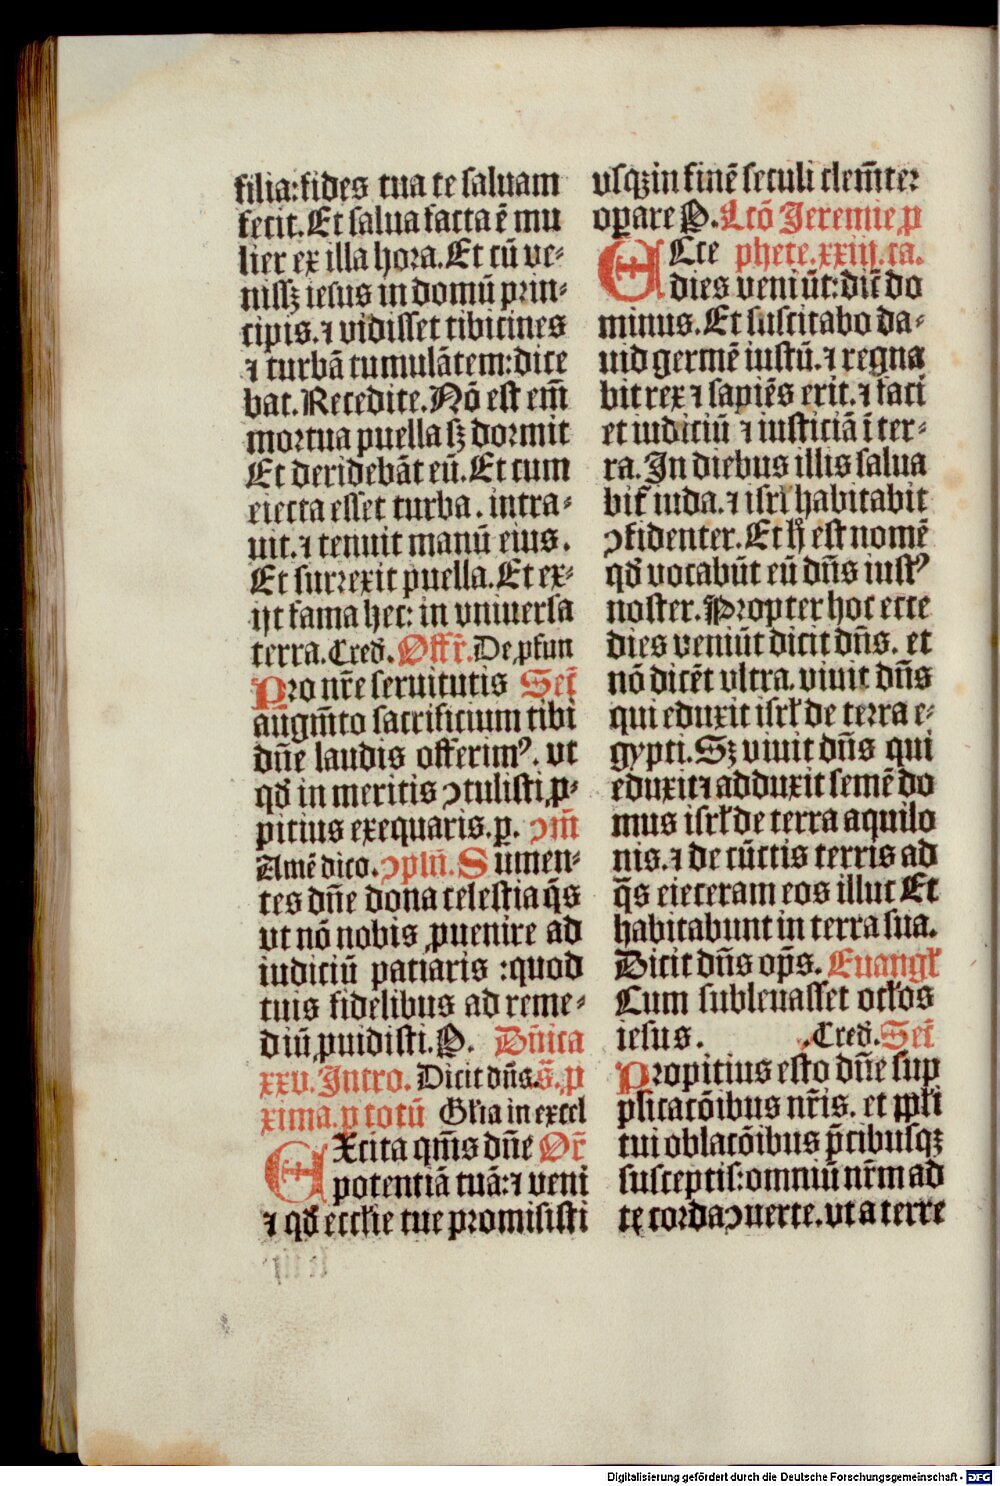 filia: fides tua te saluam
fecit. Et salua facta ē mu
lier ex illa hora. Et cū ve⸗
nissꝫ iesus in domū prin⸗
cipis. ⁊ vidisset tibicines
⁊ turbā tumulātem: dice
bat. Recedite. Nō est em̄
mortua puella sꝫ dormit
Et deridebāt eū. Et cum
eiecta esset turba. intra⸗
uit. ⁊ tenuit manū eius.
Et surrexit puella. Et ex⸗
ijt fama hec: in vniuersa
terra. Cred̄. Offr̄. De ꝓfun
Pro nr̄e seruitutis Secr̄
augm̄to sacrificium tibi
dn̄e laudis offerimꝰ. vt
qd̄ in meritis ꝯtulisti, ꝓ⸗
pitius exequaris. p. ꝯm̄
Amē dico. ꝯpln̄. Sumen⸗
tes dn̄e dona celestia q̄s
vt nō nobis ꝓuenire ad
iudiciū patiaris : quod
tuis fidelibus ad reme⸗
diū ꝓuidisti. P. Dn̄ica
xxv. Intro. Dicit dn̄s. s̄. ꝓ
xima. ꝑ totū Gl̄ia in excel
EXcita qm̄s dn̄e Or̄
potentiā tuā: ⁊ veni
⁊ qd̄ eccl̄ie tue promisisti
vsqꝫ in finē seculi clem̄ter
oꝑare P. Lcō Jeremie ꝓ
ECce phete. xxiij. ca.
dies veniūt: dic̄ do
minus. Et suscitabo da⸗
uid germē iustū. ⁊ regna
bit rex ⁊ sapiēs erit. ⁊ faci
et iudiciū ⁊ iusticiā ī ter⸗
ra. In diebus illis salua
bit̄ iuda. ⁊ isrl̄ habitabit
ꝯfidenter. Et h̄ est nomē
qd̄ vocabūt eū dn̄s iustꝰ
noster. Propter hoc ecce
dies veniūt dicit dn̄s. et
nō dicēt vltra. viuit dn̄s
qui eduxit isrl̄ de terra e⸗
gypti. Sꝫ viuit dn̄s qui
eduxit ⁊ adduxit semē do
mus isrl̄ de terra aquilo
nis. ⁊ de cūctis terris ad
q̄s eieceram eos illuc Et
habitabunt in terra sua.
Dicit dn̄s op̄s. Euangl̄
Cum subleuasset ocl̄os
iesus. Cred̄. Secr̄
Propitius esto dn̄e sup
plicatōibus nr̄is. et ppl̄i
tui oblatōibus p̄cibusqꝫ
susceptis: omniū nr̄m ad
te corda ꝯuerte. vt a terre
Digitalisierung gefördert durch die Deutsche Forschungsgemeinschaft - DFG